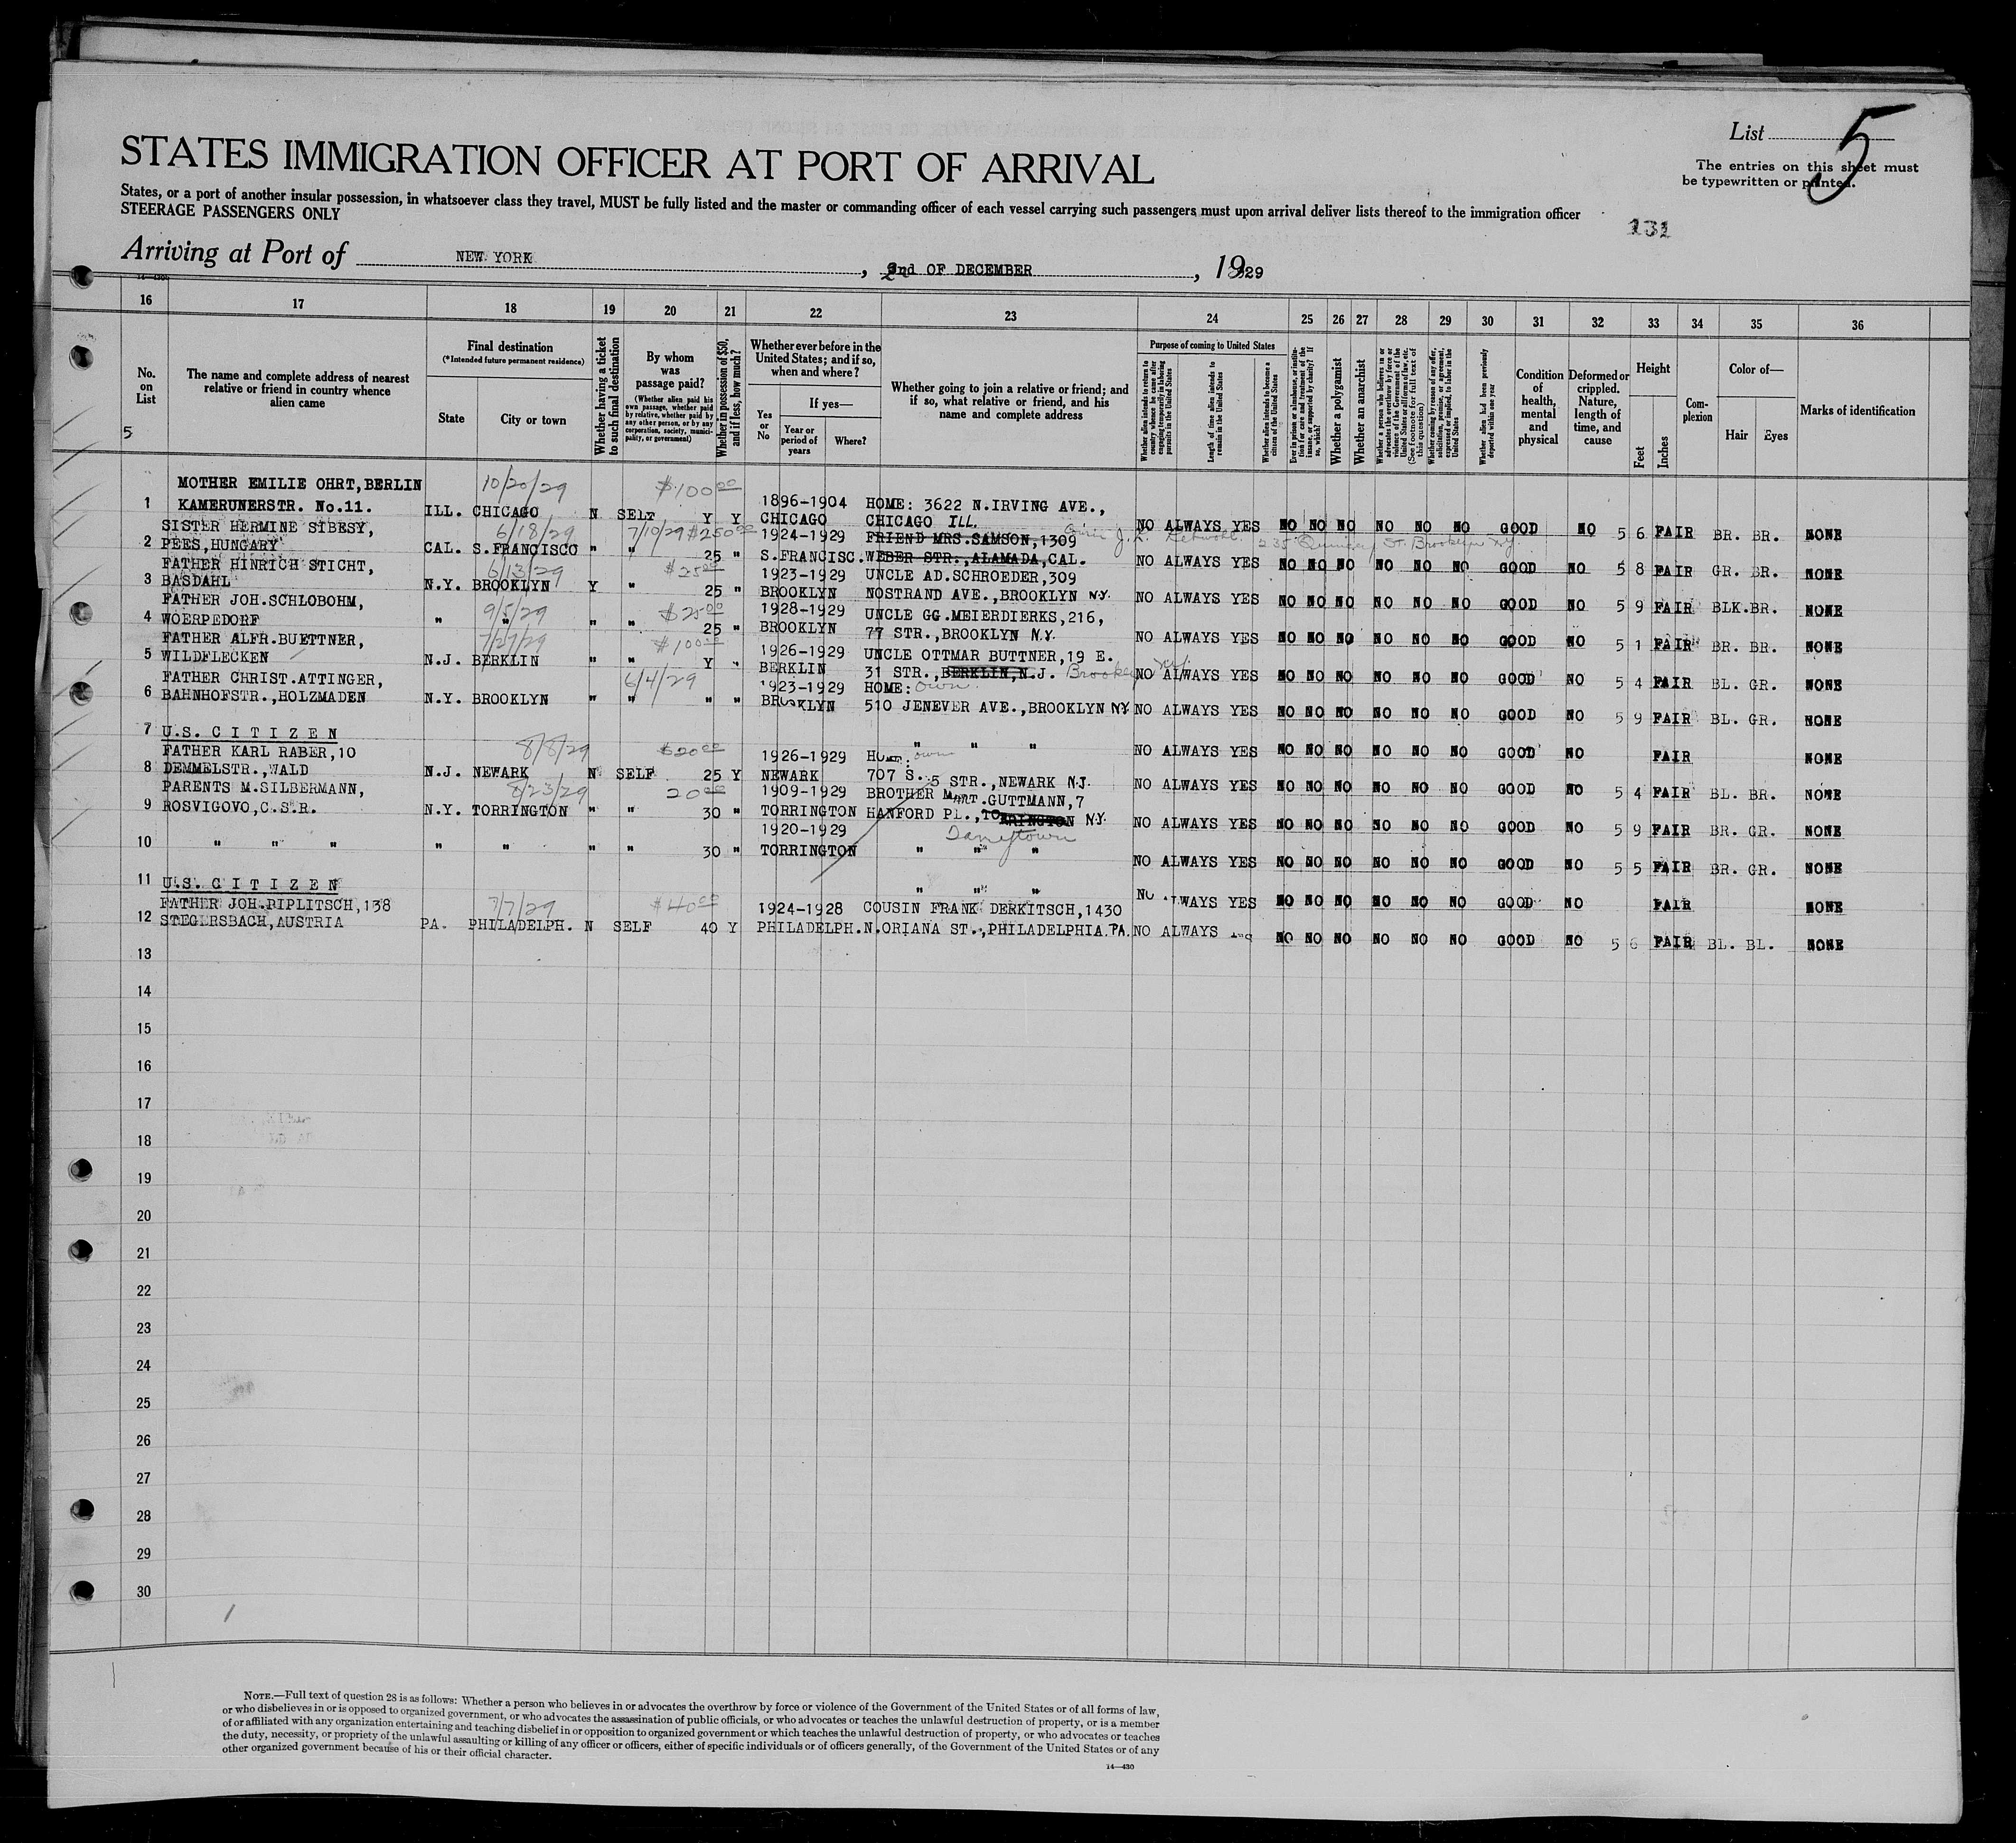 List 5
The entries on this sheet must
be typewritten or printed.
STATES IMMIGRATION OFFICER AT PORT OF ARRIVAL
States, or a port of another insular possession, in whatsoever class they travel, MUST be fully listed and the master or commanding officer of each vessel carrying such passengers must upon arrival deliver lists thereof to the immigration officer
STEERAGE PASSENGERS ONLY
131
Arriving at Port of NEW YORK, 2nd OF DECEMBER, 1929
16 17 18 19 20 21 22 23 24 25 26 27 28 29 30 31 32 33 34 35 36
No. on List
5
The name and complete address of nearest relative or friend in country whence alien came
Final destination
(*Intended future permanent residence)
State
City or town
Whether having a ticket to such final destination
By whom was passage paid?
(Whether alien paid his own passage, whether paid by relative, whether paid by any other person, or by any corporation, society, municipality, or government)
Whether in possession of $50, and if less, how much?
Whether ever before in the United States; and if so, when and where?
Yes or No
If yes—
Year or period of years
Where?
Whether going to join a relative or friend; and if so, what relative or friend, and his name and complete address
Purpose of coming to United States
Whether alien intends to return to country whence he came after engaging temporarily in laboring pursuits in the United States
Length of time alien intends to remain in the United States
Whether alien intends to become a citizen of the United States
Ever in prison or almshouse, or institution for care and treatment of the insane, or supported by charity? If so, which?
Whether a polygamist
Whether an anarchist
Whether a person who believes in or advocates the overthrow by force or violence of the Government of the United States or all forms of law, etc. (See footnote for full text of this question)
Whether coming by reason of any offer, solicitation, promise, or agreement, expressed or implied, to labor in the United States
Whether alien had been previously deported within one year
Condition of health, mental and physical
Deformed or crippled. Nature, length of time, and cause
Height
Feet
Inches
Complexion
Color of—
Hair
Eyes
Marks of identification
MOTHER EMILIE OHRT,BERLIN 10/20/29 $100 00
1 KAMERUNERSTR. No.11. ILL. CHICAGO N SELF Y Y 1896-1904 CHICAGO HOME: 3622 N.IRVING AVE., CHICAGO ILL. NO ALWAYS YES NO NO NO NO NO NO GOOD NO 5 6 FAIR BR. BR. NONE
SISTER HERMINE SIBESY, 6/18/29 7/10/29 $250 00
2 PEES,HUNGARY CAL. S.FRANCISCO " " 25 " 1924-1929 S.FRANCISC. FRIEND MRS.SAMSON,1309 WEBER STR.,ALAMADA,CAL. NO ALWAYS YES NO NO NO NO NO NO GOOD NO 5 8 FAIR GR. BR. NONE
235 Quincey St. Brooklyn N.Y.
FATHER HINRICH STICHT, 6/13/29 $25 00
3 BASDAHL N.Y. BROOKLYN Y " 25 " 1923-1929 BROOKLYN UNCLE AD.SCHROEDER,309 NOSTRAND AVE.,BROOKLYN N.Y. NO ALWAYS YES NO NO NO NO NO NO GOOD NO 5 9 FAIR BLK.BR. NONE
FATHER JOH.SCHLOBOHM, 9/5/29 $25 00
4 WOERPEDORF " " " " 25 " 1928-1929 BROOKLYN UNCLE GG.MEIERDIERKS,216, 77 STR.,BROOKLYN N.Y. NO ALWAYS YES NO NO NO NO NO NO GOOD NO 5 1 FAIR BR. BR. NONE
FATHER ALFR.BUETTNER, 7/27/29 $100 00
5 WILDFLECKEN N.J. BERKLIN " " Y " 1926-1929 BERKLIN UNCLE OTTMAR BUTTNER,19 E. 31 STR.,BERKLIN,N.J. NO ALWAYS YES NO NO NO NO NO NO GOOD NO 5 4 FAIR BL. GR. NONE
FATHER CHRIST.ATTINGER, 6/4/29
6 BAHNHOFSTR.,HOLZMADEN N.Y. BROOKLYN " " " " 1923-1929 BROOKLYN HOME: own 510 JENEVER AVE.,BROOKLYN NY NO ALWAYS YES NO NO NO NO NO NO GOOD NO 5 9 FAIR BL. GR. NONE
7 U.S. C I T I Z E N " " " NO ALWAYS YES NO NO NO NO NO NO GOOD NO FAIR NONE
FATHER KARL RABER,10 8/8/29 $20 00
8 DEMMELSTR.,WALD N.J. NEWARK N SELF 25 Y 1926-1929 NEWARK own 707 S. 5 STR.,NEWARK N.J. NO ALWAYS YES NO NO NO NO NO NO GOOD NO 5 4 FAIR BL. BR. NONE
PARENTS M.SILBERMANN, 8/23/29 20 00
9 ROSVIGOVO,C.S.R. N.Y. TORRINGTON " " 30 " 1909-1929 TORRINGTON BROTHER MART.GUTTMANN,7 HANFORD PL.,TORRINGTON N.Y. NO ALWAYS YES NO NO NO NO NO NO GOOD NO 5 9 FAIR BR. GR. NONE
10 " " " " " " " 30 " 1920-1929 TORRINGTON " " " NO ALWAYS YES NO NO NO NO NO NO GOOD NO 5 5 FAIR BR. GR. NONE
11 U.S. C I T I Z E N " " " NO ALWAYS YES NO NO NO NO NO NO GOOD NO FAIR NONE
FATHER JOH.PIPLITSCH,138 7/7/29 $40 00
12 STEGERSBACH,AUSTRIA PA. PHILADELPH. N SELF 40 Y 1924-1928 PHILADELPH. COUSIN FRANK DERKITSCH,1430 N.ORIANA ST.,PHILADELPHIA.PA. NO ALWAYS NO NO NO NO NO NO GOOD NO 5 6 FAIR BL. BL. NONE
13
14
15
16
17
18
19
20
21
22
23
24
25
26
27
28
29
30
NOTE.—Full text of question 28 is as follows: Whether a person who believes in or advocates the overthrow by force or violence of the Government of the United States or of all forms of law,
or who disbelieves in or is opposed to organized government, or who advocates the assassination of public officials, or who advocates or teaches the unlawful destruction of property, or is a member
of or affiliated with any organization entertaining and teaching disbelief in or opposition to organized government or which teaches the unlawful destruction of property, or who advocates or teaches
the duty, necessity, or propriety of the unlawful assaulting or killing of any officer or officers, either of specific individuals or of officers generally, of the Government of the United States or of any
other organized government because of his or their official character.
14—430